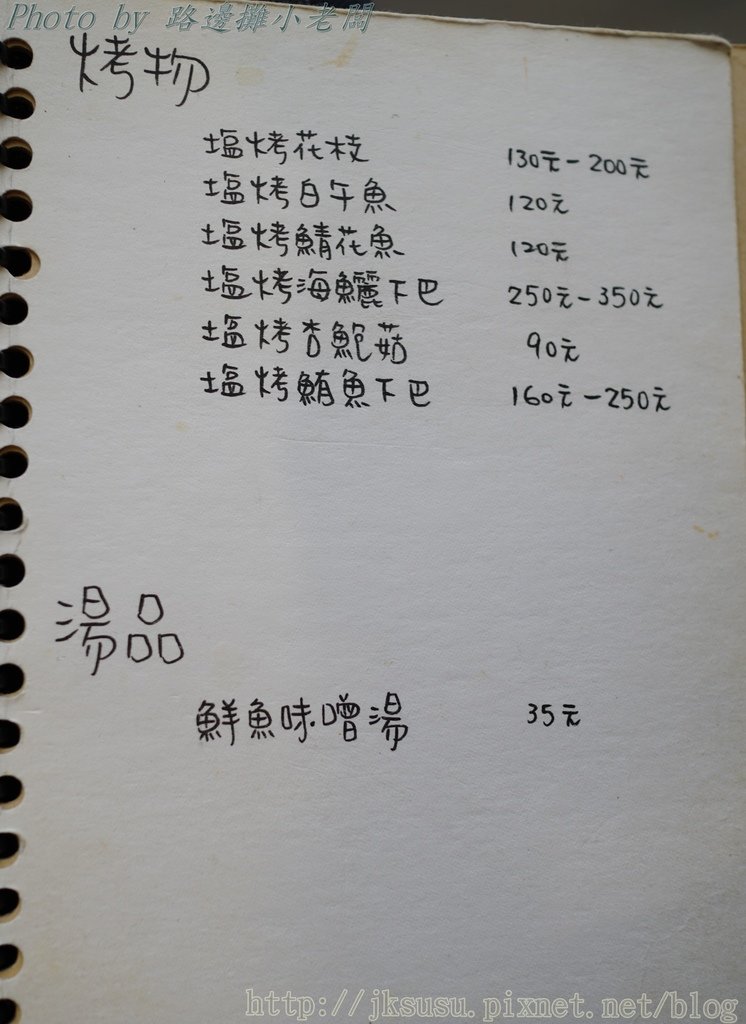 Photo by 路邊攤小老闆
烤物
塩烤花枝 130元-200元
塩烤白午魚 120元
塩烤鯖花魚 120元
塩烤海鱺下巴 250元-350元
塩烤杏鮑菇 90元
塩烤鮪魚下巴 160元-250元
湯品
鮮魚味噌湯 35元
http://jksusu.pixnet.net/blog